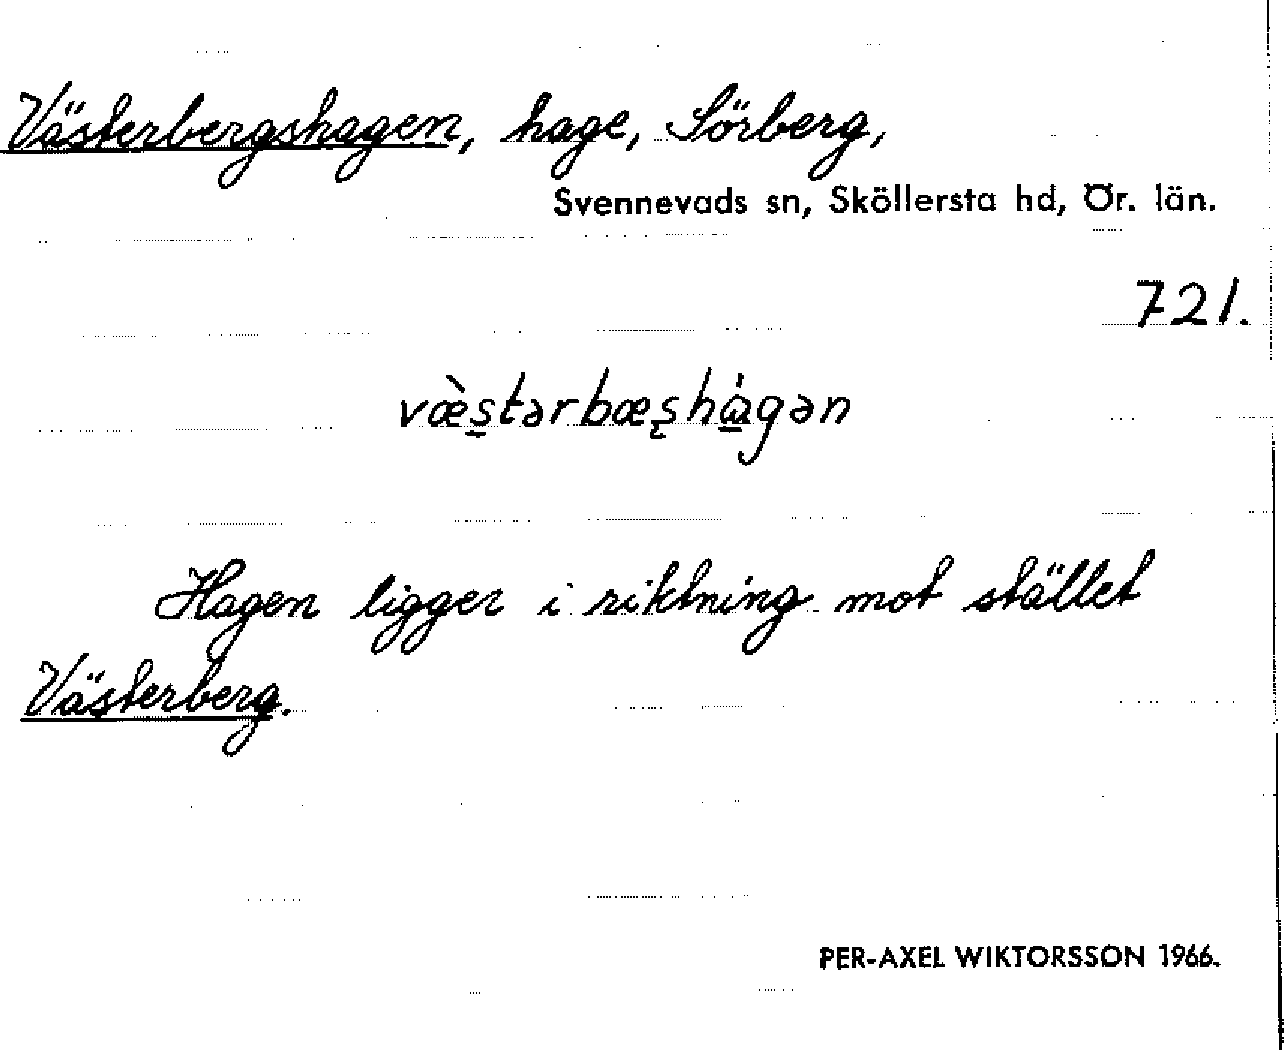 Västerbergshagen, hage, Sörberg,
Svennevads sn, Sköllersta hd, Ör. län.
721.
væ̀s̠tərbæʂhá̠gən
Hagen ligger i riktning mot stället
Västerberg.
PER-AXEL WIKTORSSON 1966.